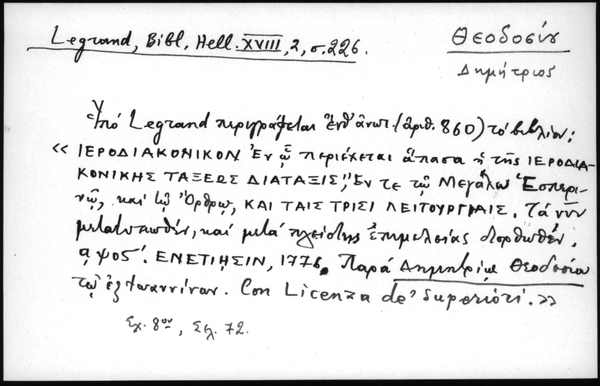 Legrand, Bibl. Hell. XVIII, 2, σ. 226.
Θεοδοσίου
Δημήτριος
Ὑπό Legrand περιγράφεται ἔνθ' ἀνωτ. (ἀριθ. 860) τό βιβλίον:
« ΙΕΡΟΔΙΑΚΟΝΙΚΟΝ Ἐν ᾧ περιέχεται ἅπασα ἡ τῆς ΙΕΡΟΔΙΑ-
ΚΟΝΙΚΗΣ ΤΑΞΕΩΣ ΔΙΑΤΑΞΙΣ, Ἔν τε τῷ Μεγάλῳ Ἑσπερι-
νῷ, καί τῷ Ὄρθρῳ, ΚΑΙ ΤΑΙΣ ΤΡΙΣΙ ΛΕΙΤΟΥΡΓΙΑΙΣ. Τά νῦν
μετατυπωθέν, καί μετά πλείστης ἐπιμελείας διορθωθέν.
αψοϛ´. ΕΝΕΤΙΗΣΙΝ, 1776. Παρά Δημητρίῳ Θεοδοσίου
τῷ ἐξ Ἰωαννίνων. Con Licenza de' Superiori. »
Σχ. 8ον, Σελ. 72.